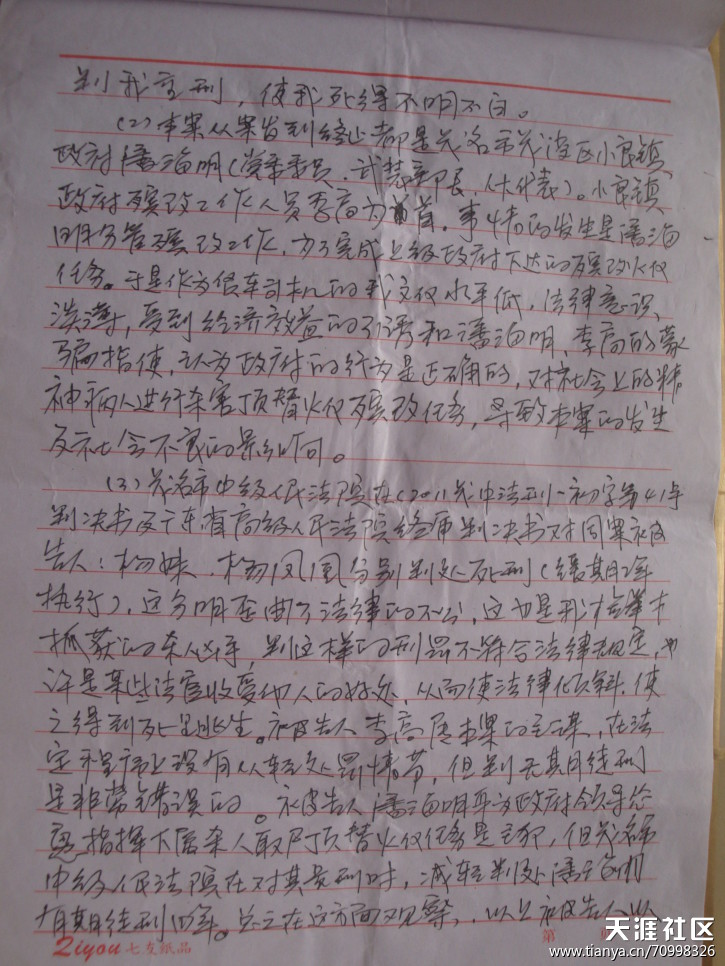 判我重刑，使我死得不明不白。
(2)本案从案发到终止都是茂名市茂港区小良镇
政府潘海明(党委委员、武装部长、人大代表)。小良镇
政府殡改工作人员李高为首。事情的发生是潘海
明分管殡改工作，为了完成上级政府下达的殡改火化
任务。于是作为灵车司机的我文化水平低，法律意识
淡薄，受到经济效益的引诱和潘海明、李高的蒙
骗指使，认为政府的行为是正确的，对社会上的精
神病人进行杀害顶替火化殡改任务，导致本案的发生
及社会不良的影响。
(3)茂名市中级人民法院在(2011)茂中法刑一初字第41号
判决书及广东省高级人民法院终审判决书对同案被
告人：杨妹、杨凤凰分别判处死刑(缓期2年
执行)，这分明歪曲了法律的不公，这也是我检举才
抓获的杀人凶手，判这样的刑罚不符合法律规定，也
许是某些法官收受他人的好处，从而使法律倾斜，使
之得到死里逃生。被告人李高属本案的主谋，在法
定程序上没有从轻处罚情节，但判无期徒刑
是非常错误的。被告人潘海明身为政府领导
指挥下属杀人取尸顶替火化任务是主犯，但茂名市
中级人民法院在对其量刑时，减轻判处潘海明
有期徒刑10年。总之在这方面又观察，以上被告人以
Ziyou 七友纸品
第
天涯社区
www.tianya.cn/70998326